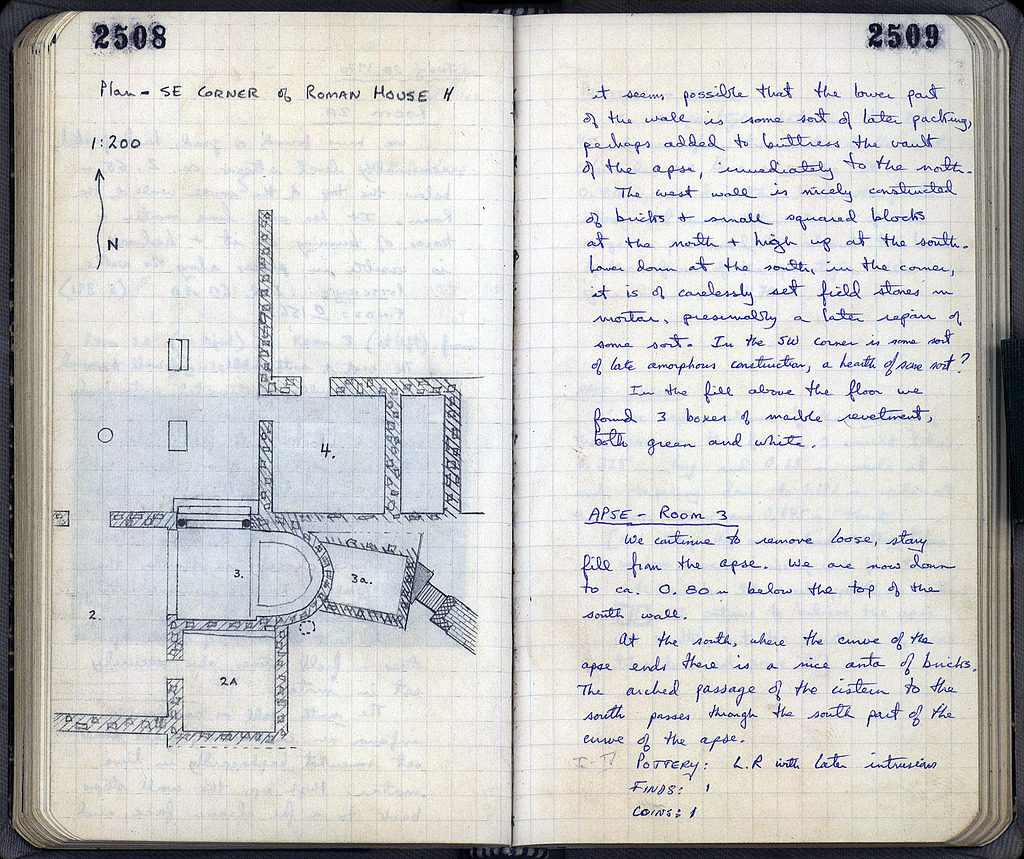 2508
Plan - SE CORNER of ROMAN HOUSE H
1:200
N
4.
3.
3a.
2.
2A
2509
it seems possible that the lower part
of the wall is some sort of later packing,
perhaps added to buttress the vault
of the apse, immediately to the north.
The west wall is nicely constructed
of bricks + small squared blocks
at the north + high up at the south.
Lower down at the south, in the corner,
it is of carelessly set field stones in
mortar, presumably a later repair of
some sort. In the SW corner is some sort
of late amorphous construction, a hearth of some sort?
In the fill above the floor we
found 3 boxes of marble revetment,
both green and white.
APSE - ROOM 3
We continue to remove loose, stony
fill from the apse. We are now down
to ca. 0.80 m below the top of the
south wall.
At the south, where the curve of the
apse ends there is a nice anta of bricks.
The arched passage of the cistern to the
south passes through the south part of the
curve of the apse.
POTTERY: L.R with later intrusions
FINDS: 1
COINS: 1